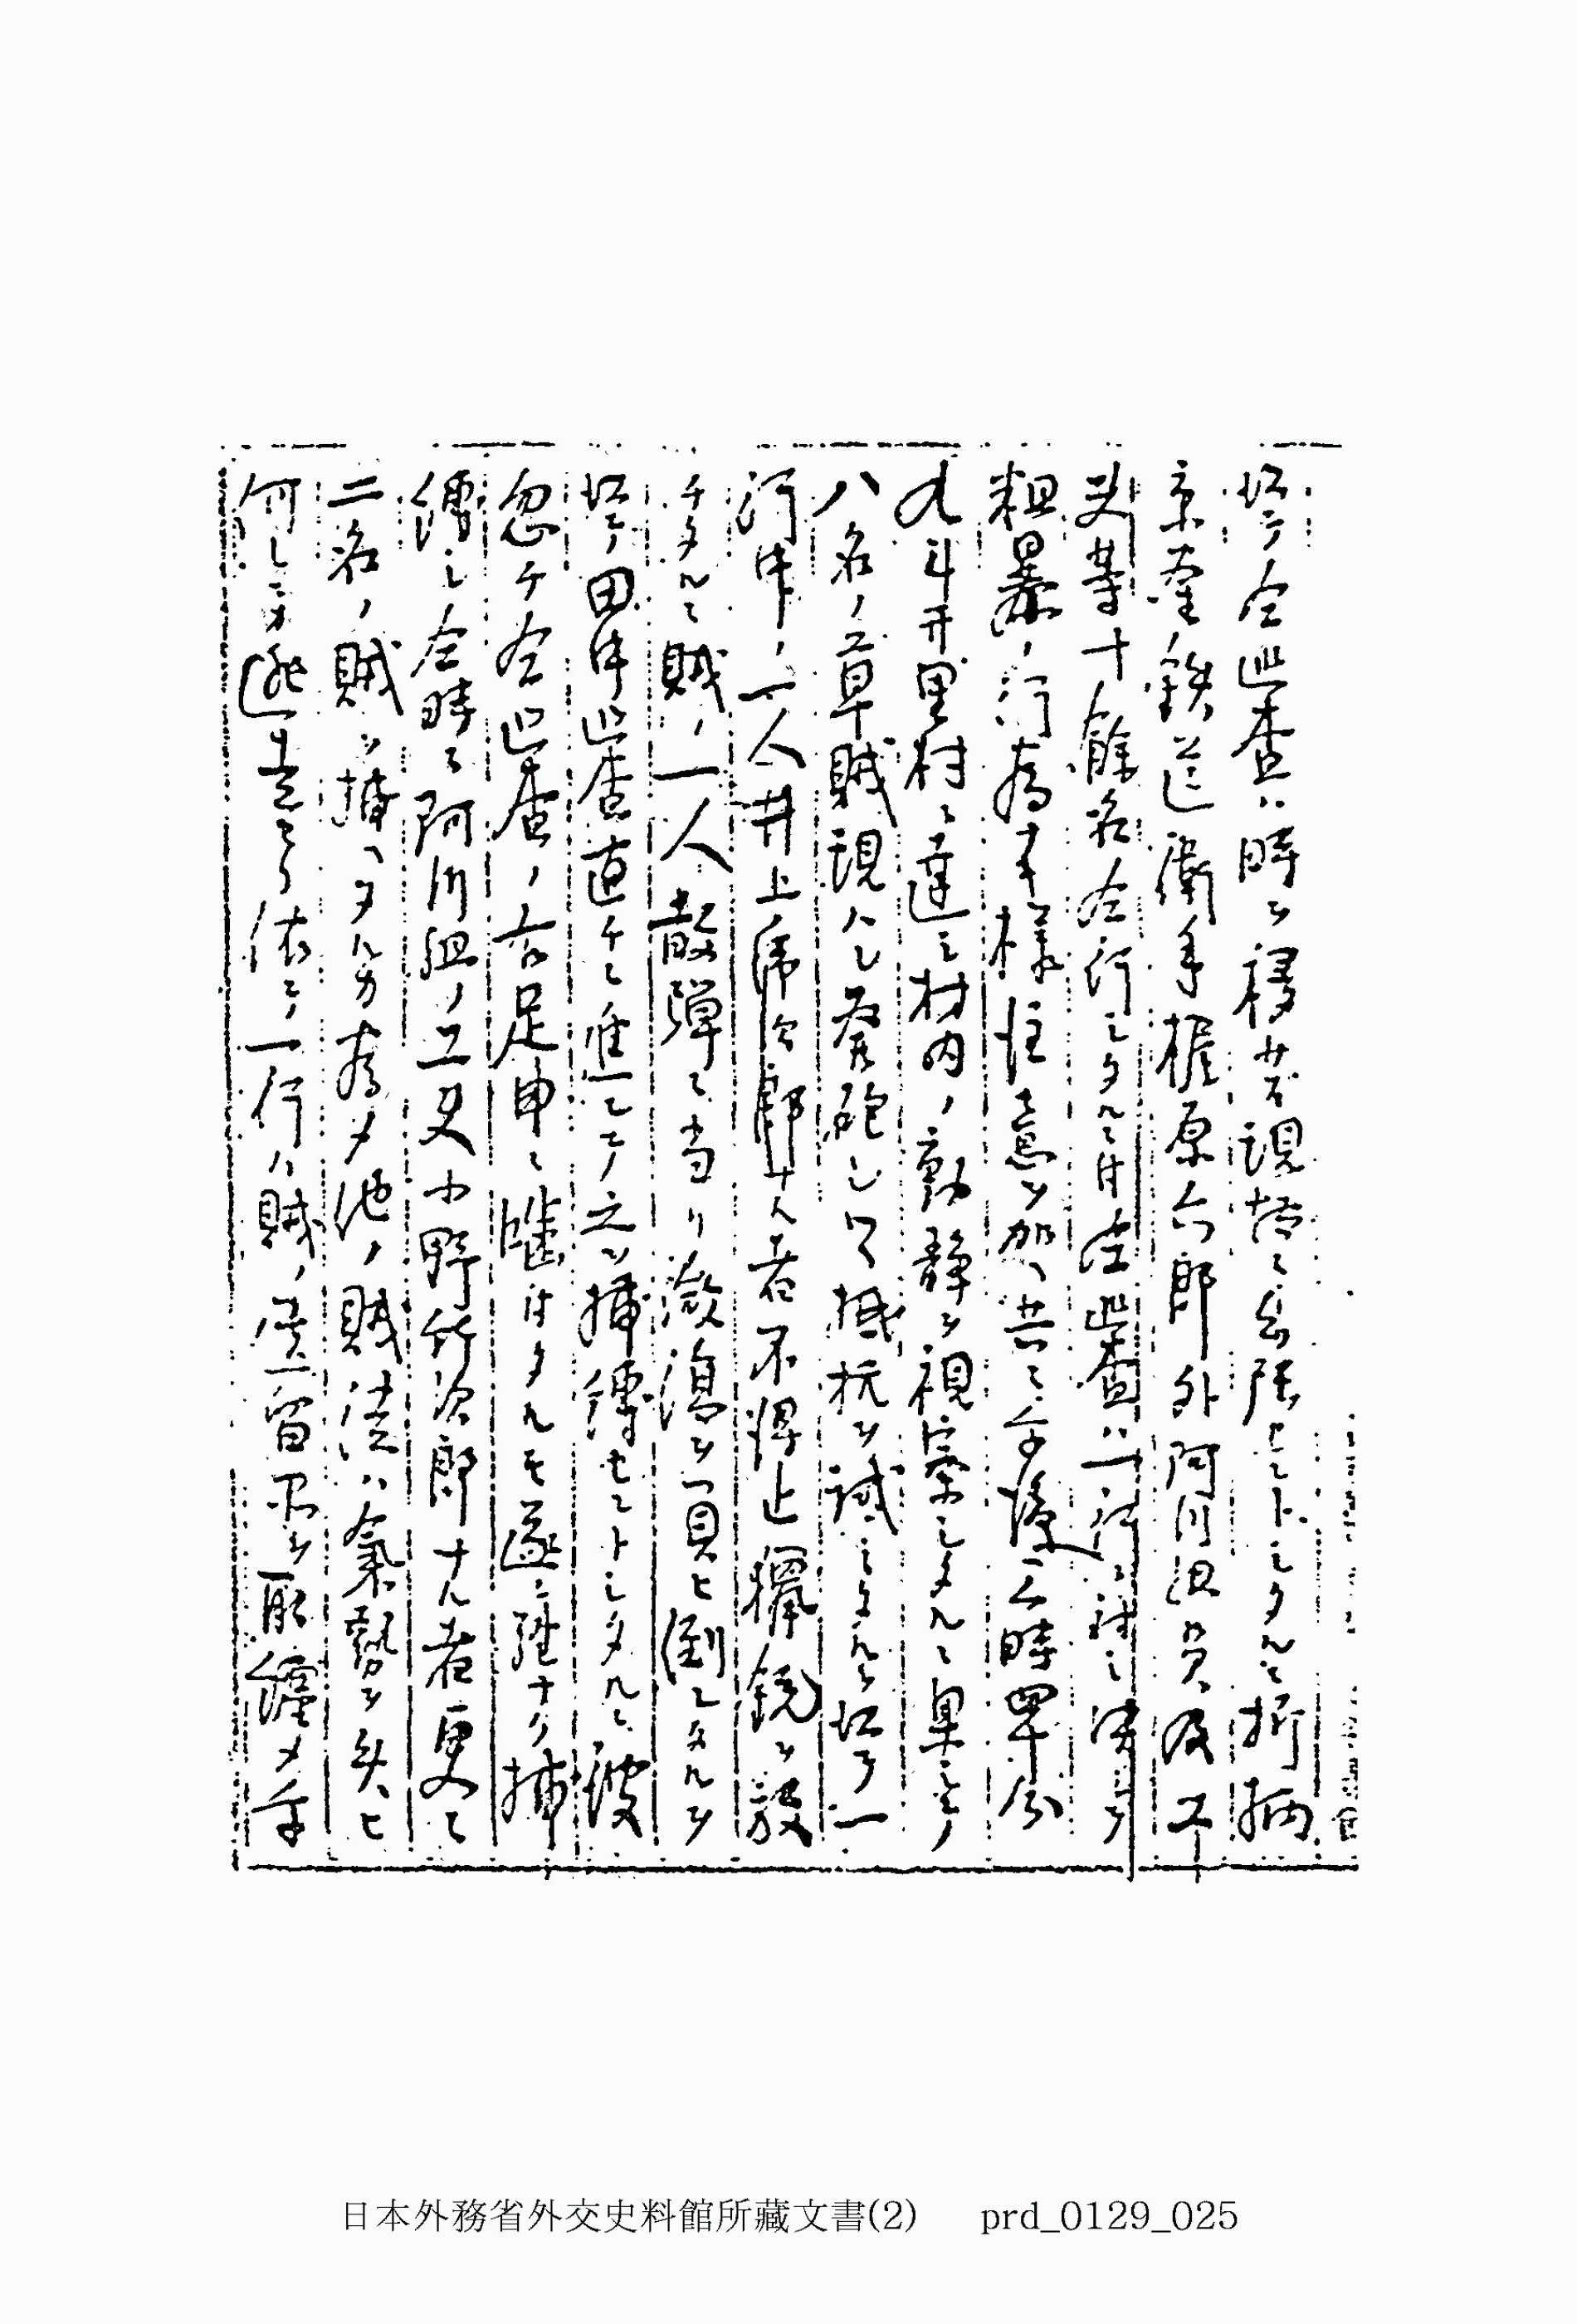 於テ仝巡査ハ時ヲ移サス現場ニ出張セントシタルニ折柄
京釜鉄道衛手梶原六郎外阿川組員及工
夫等十餘名仝行シタルニ付仝巡査ハ一行ニ對シ
粗暴ノ行為ナキ様注意ヲ加ヘ共ニ午後三時四十分
九斗井里村ニ達シ村内ノ動静ヲ視察シタルニ果シテ
八名ノ草賊現ハレ発砲シテ抵抗ヲ試ミタルヨリ於テ一
行中ノ一人井上 郎ナル者不得止猟銃ヲ放
チタルニ賊ノ一人散弾ニ当リ微傷ヲ負ヒ倒レタルヲ
田中巡査直チニ進ンテ之ヲ捕縛セントシタルニ彼
忽チ仝巡査ノ右足甲ニ付タルモ遂ニ難ナク捕
縛シ仝時ニ阿川組ノ工夫小野竹次郎ナル者更ニ
二名ノ賊ヲ捕ヘタルカ為メ他ノ賊徒ハ氣勢ヲ失ヒ
何レヘカ逃走セリ依テ一行ハ賊ノ遺留品ヲ取纏メ午
日本外務省外交史料館所藏文書(2) prd_0129_025